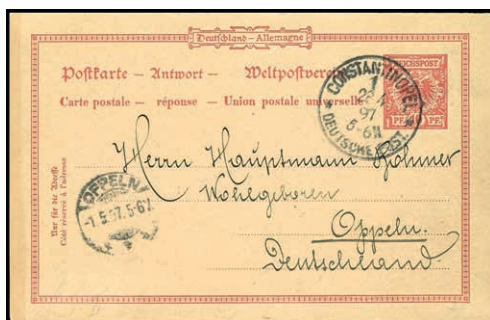 Deutschland – Allemagne
Postkarte – Antwort – Weltpostverein
Carte postale – réponse – Union postale universelle
REICHSPOST
PF PF
CONSTANTINOPEL
1
97
5-6N
DEUTSCHE POST
Nur für die Adresse
Côté réservé à l'adresse
OPPELN
1.5.97.5-6
Herrn Hauptmann Böhmer
Wohlgeboren
Oppeln.
Deutschland.